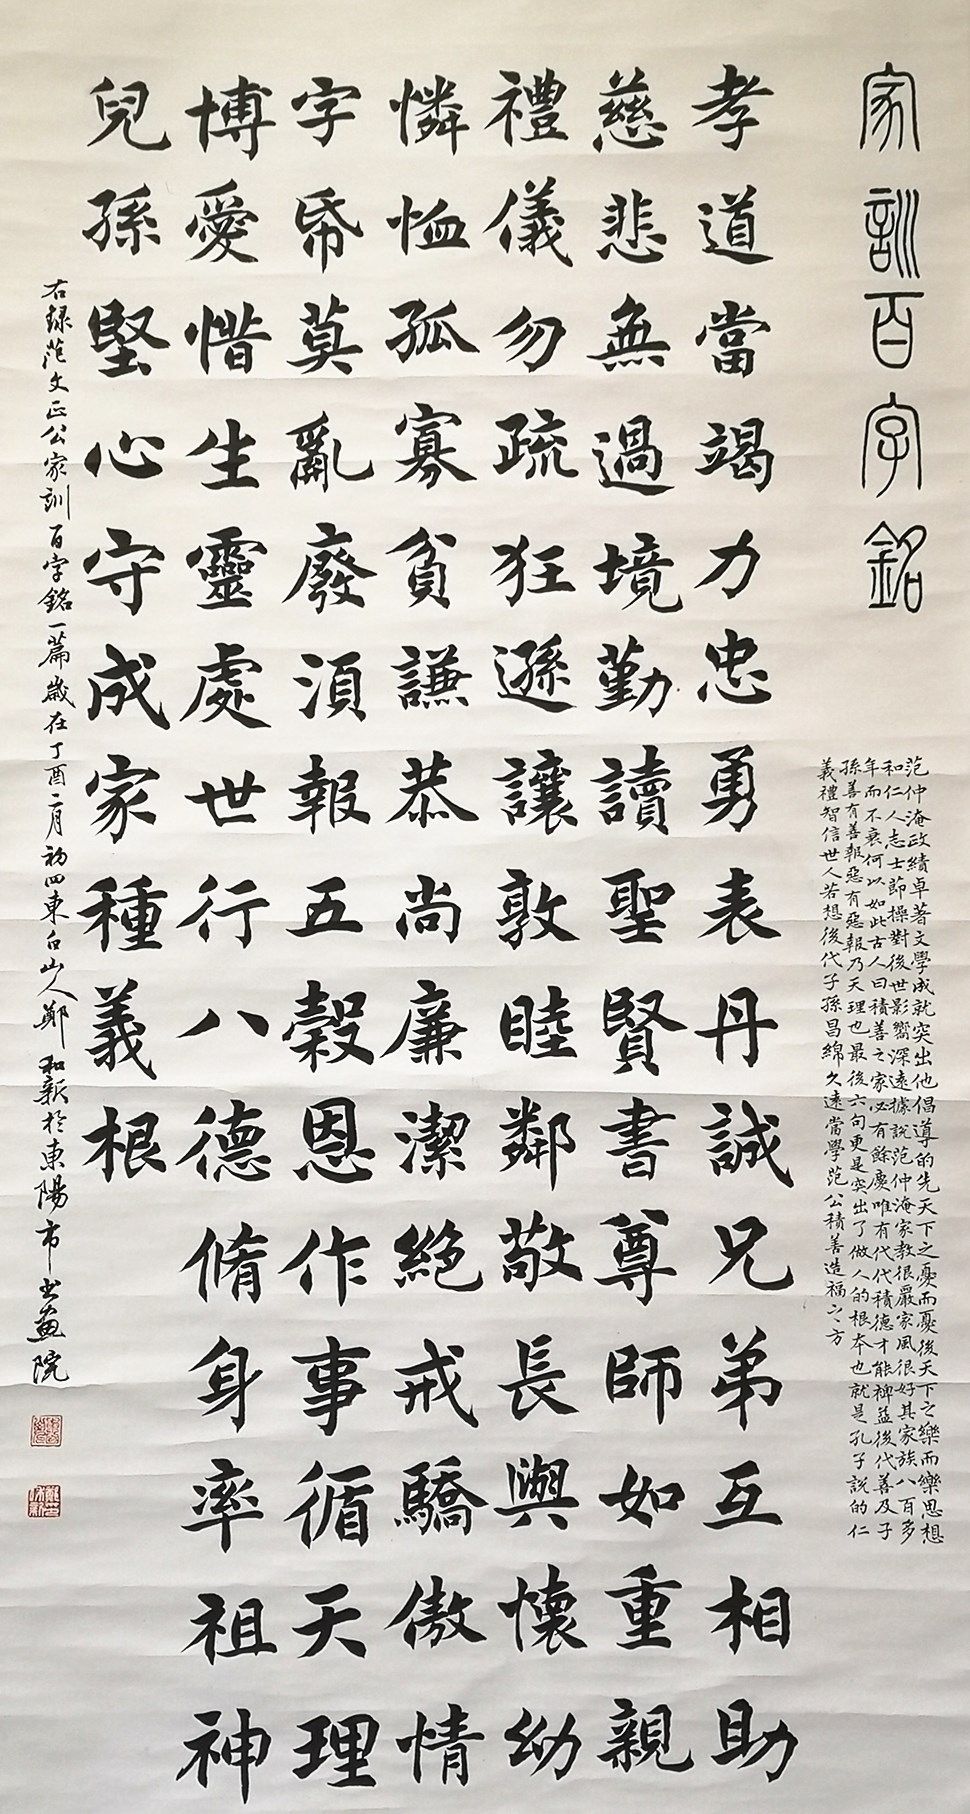 家訓百字銘
范仲淹政績卓著文學成就突出他倡導的先天下之憂而憂後天下之樂而樂思想
和仁人志士節操對後世影響深遠據說范仲淹家教很嚴家風很好其家族八百多
年而不衰何以如此古人曰積善之家必有餘慶唯有代代積德才能裨益後代善及子
孫善有善報惡有惡報乃天理也最後六句更是突出了做人的根本也就是孔子說的仁
義禮智信世人若想後代子孫昌綿久遠當學范公積善造福六方
孝道當竭力忠勇表丹誠兄弟互相助
慈悲無過境勤讀聖賢書尊師如重親
禮儀勿疏狂遜讓敦睦鄰敬長與懷幼
憐恤孤寡貧謙恭尚廉潔絕戒驕傲情
字帋莫亂廢須報五穀恩作事循天理
博愛惜生靈處世行八德脩身率祖神
兒孫堅心守成家種義根
右録范文正公家訓百字銘一篇歲在丁酉二月初四東白山人鄭和新於東陽市书画院